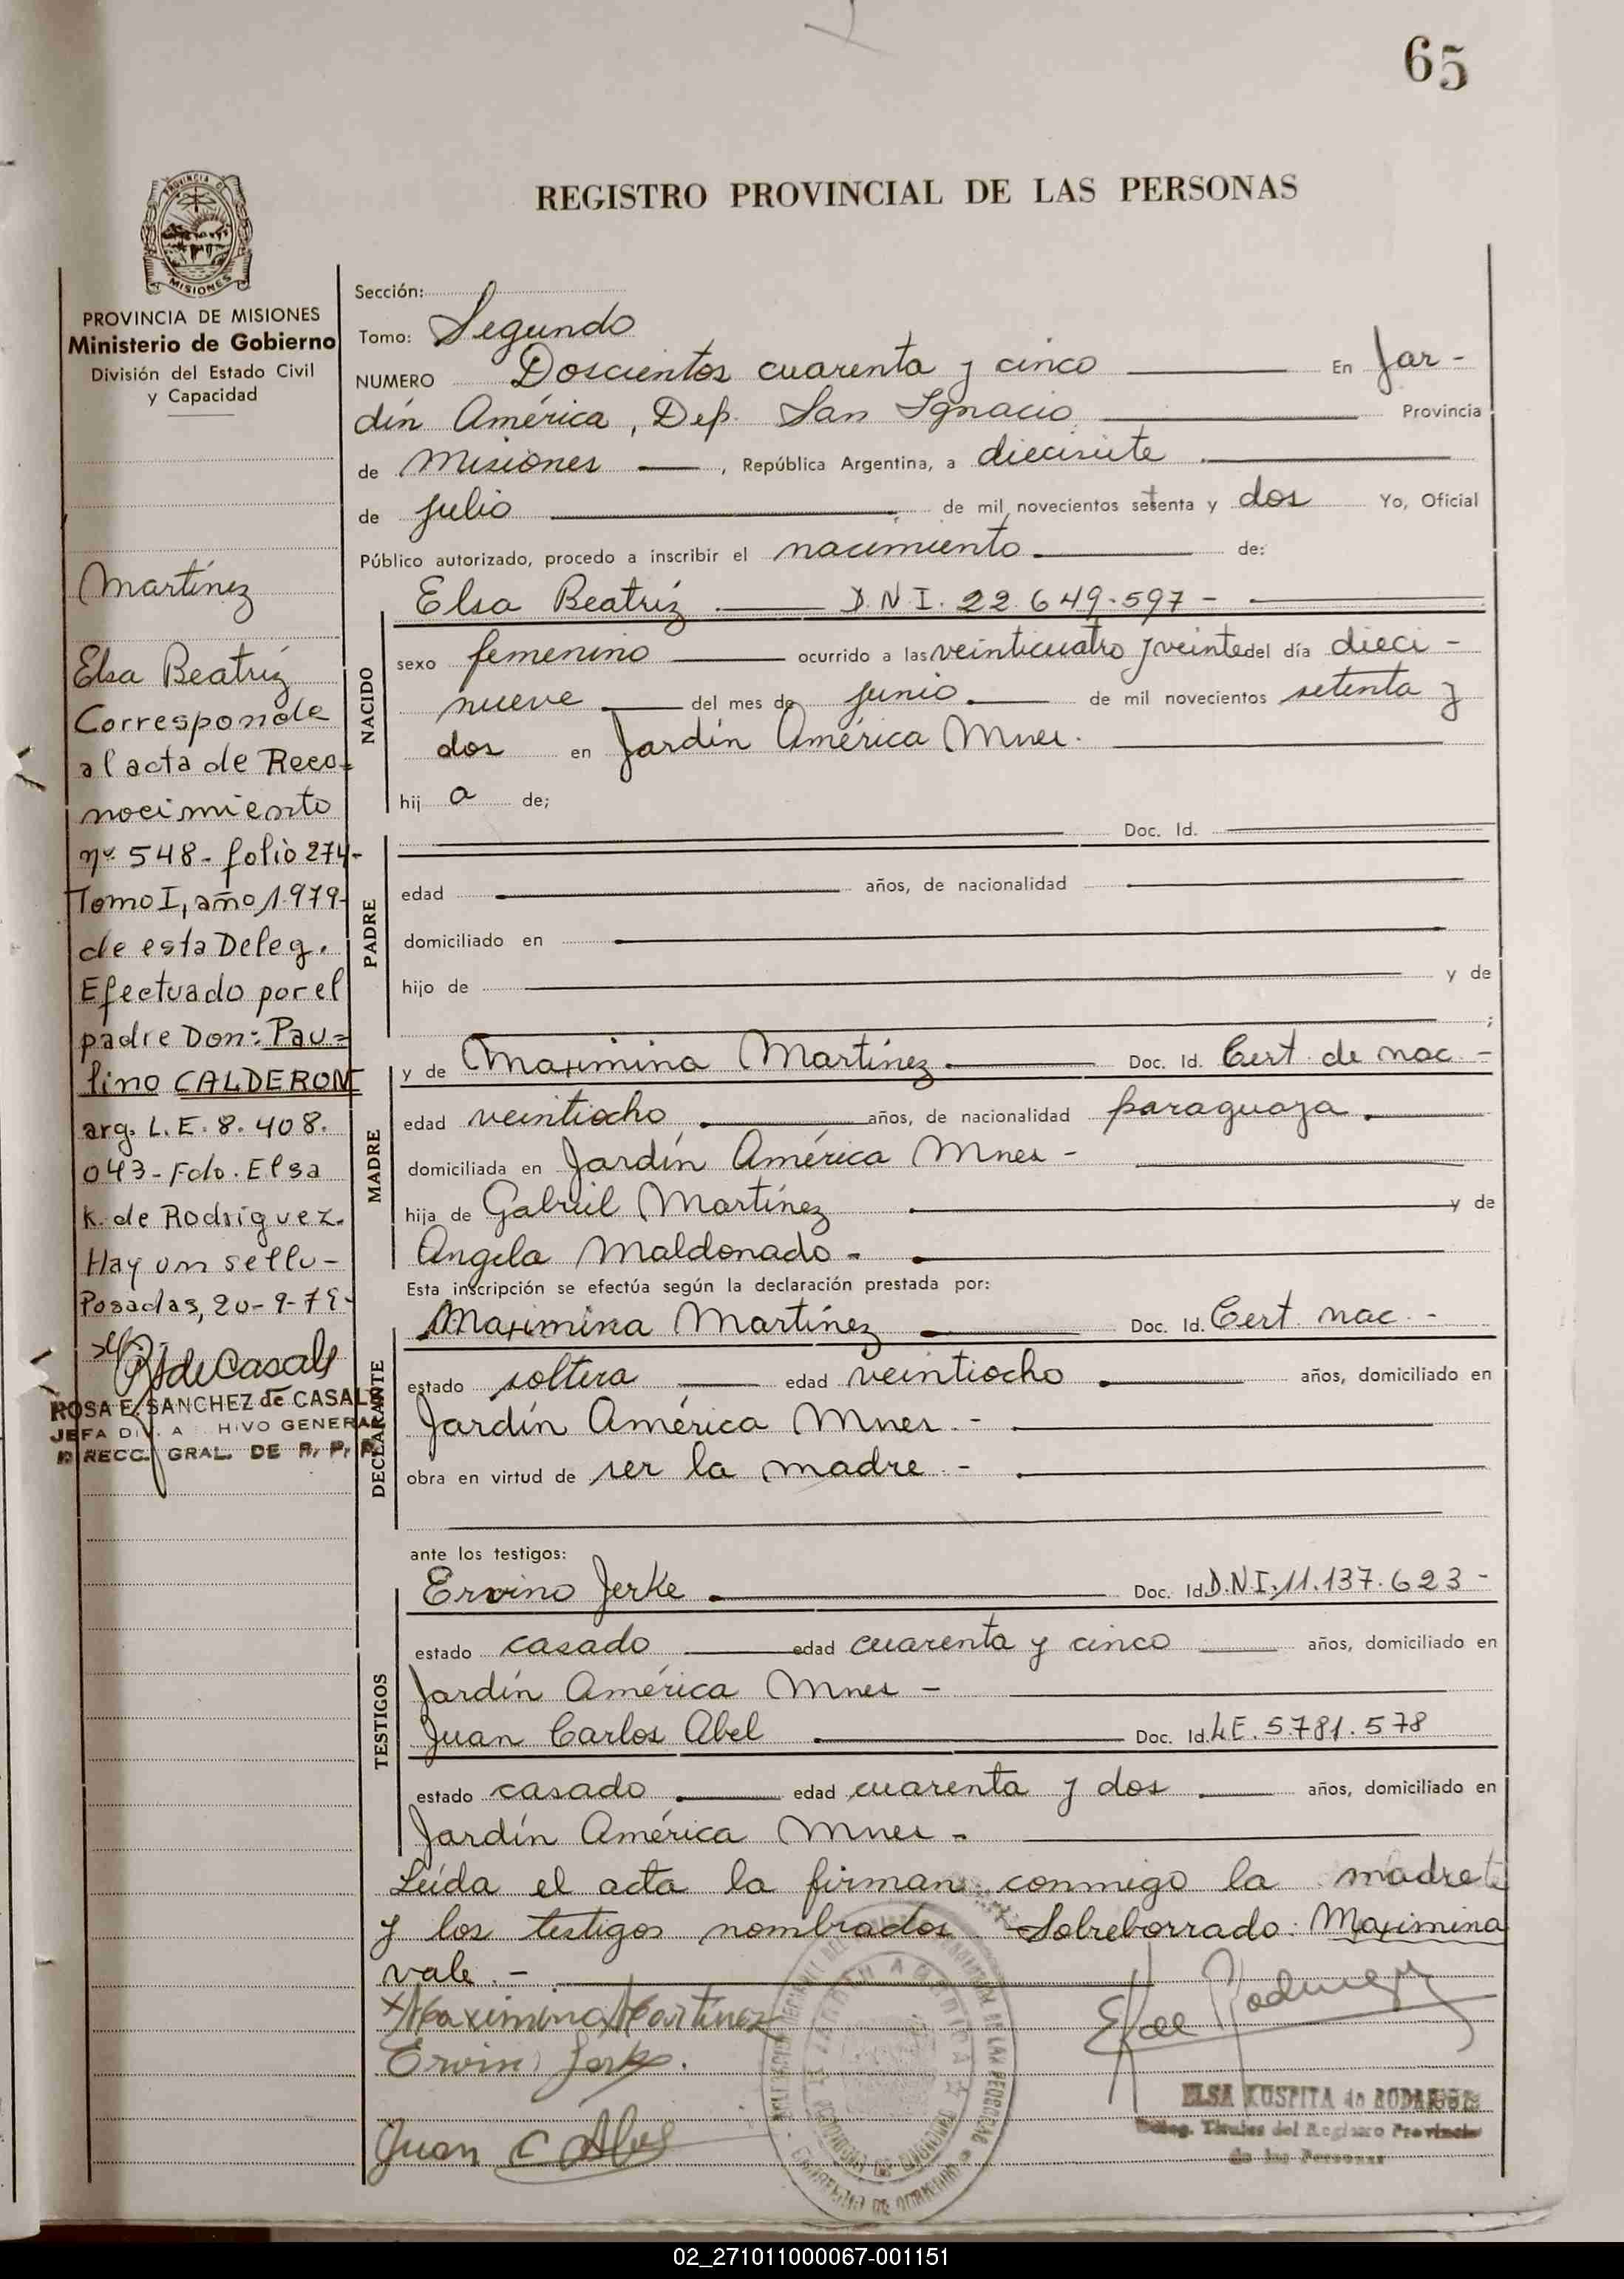 65
REGISTRO PROVINCIAL DE LAS PERSONAS
PROVINCIA DE
MISIONES
PROVINCIA DE MISIONES
Ministerio de Gobierno
División del Estado Civil
y Capacidad
Martínez
Elsa Beatriz
Corresponde
al acta de Reco=
nocimiento
nº 548- folio 274-
Tomo I, año 1979-
de esta Deleg.
Efectuado por el
padre Don: Pau=
lino CALDERON
arg. L.E. 8.408.
043- Fdo. Elsa
K. de Rodriguez.
Hay un sello-
Posadas, 20-9-79-
RSdeCasals
ROSA E. SANCHEZ de CASALS
JEFA DIV. A HIVO GENERAL
DIRECC. GRAL. DE R. P. P.
Sección:
Tomo: Segundo
NUMERO Doscientos cuarenta y cinco En Jar-
dín América, Dep. San Ignacio Provincia
de Misiones, República Argentina, a diecisiete
de julio de mil novecientos setenta y dos Yo, Oficial
Público autorizado, procedo a inscribir el nacimiento de:
Elsa Beatriz D.N.I. 22.649.597-
NACIDO
sexo femenino ocurrido a las veinticuatro y veinte del día dieci-
nueve del mes de junio de mil novecientos setenta y
dos en Jardín América Mnes.
hij a de;
Doc. Id.
PADRE
edad años, de nacionalidad
domiciliado en
hijo de y de
;
MADRE
y de Maximina Martínez Doc. Id. Cert. de nac.-
edad veintiocho años, de nacionalidad paraguaya.
domiciliada en Jardín América Mnes-
hija de Gabriel Martínez y de
Angela Maldonado-
Esta inscripción se efectúa según la declaración prestada por:
DECLARANTE
Maximina Martínez Doc. Id. Cert. nac.-
estado soltera edad veintiocho años, domiciliado en
Jardín América Mnes.-
obra en virtud de ser la madre.-
ante los testigos:
TESTIGOS
Ervino Jerke Doc. Id. D.N.I. 11.137.623-
estado casado edad cuarenta y cinco años, domiciliado en
Jardín América Mnes-
Juan Carlos Abel Doc. Id. L.E. 5.781.578
estado casado edad cuarenta y dos años, domiciliado en
Jardín América Mnes-
Leída el acta la firman conmigo la madre
y los testigos nombrados Sobreborrado: Maximina
vale.-
x Maximina Martinez
Ervino Jerke.
Juan C Abel
E K de Rodriguez
ELSA KUSPITA de RODRIGUEZ
Deleg. Titular del Registro Provincial
de las Personas
02_271011000067-001151